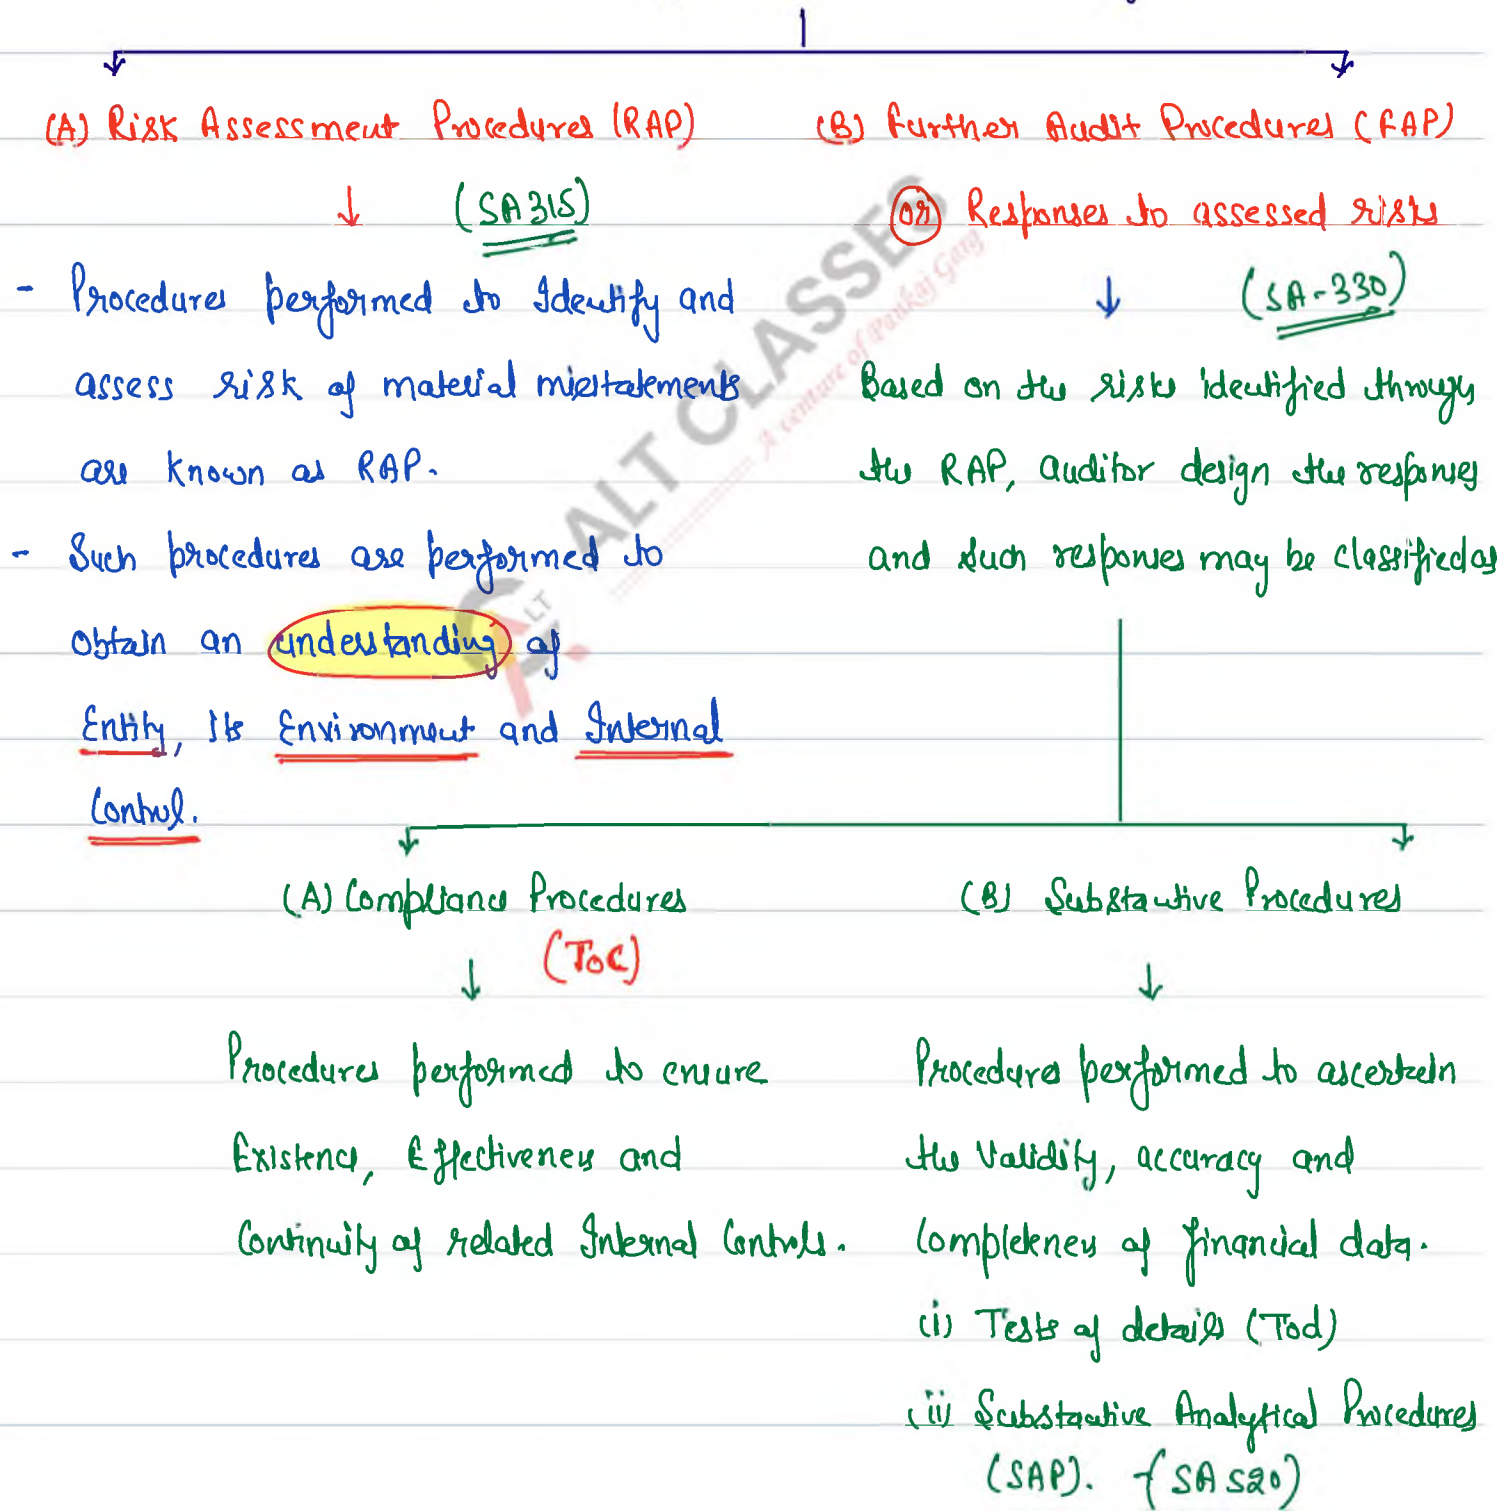 (A) Risk Assessment Procedures (RAP)
(SA 315)
- Procedures performed to Identify and
assess risk of material misstatements
are known as RAP.
- Such procedures are performed to
Obtain an understanding of
Entity, Its Environment and Internal
Control.
(B) Further Audit Procedures (FAP)
or Responses to assessed risks
(SA-330)
Based on the risks identified through
the RAP, auditor design the responses
and such responses may be classified as
(A) Compliance Procedures
(ToC)
Procedures performed to ensure
Existence, Effectiveness and
Continuity of related Internal Controls.
(B) Substantive Procedures
Procedures performed to ascertain
the Validity, accuracy and
Completeness of financial data.
(i) Tests of details (Tod)
(ii) Substantive Analytical Procedures
(SAP). - (SA 520)
ALT CLASSES
A venture of Pankaj Garg
ALT